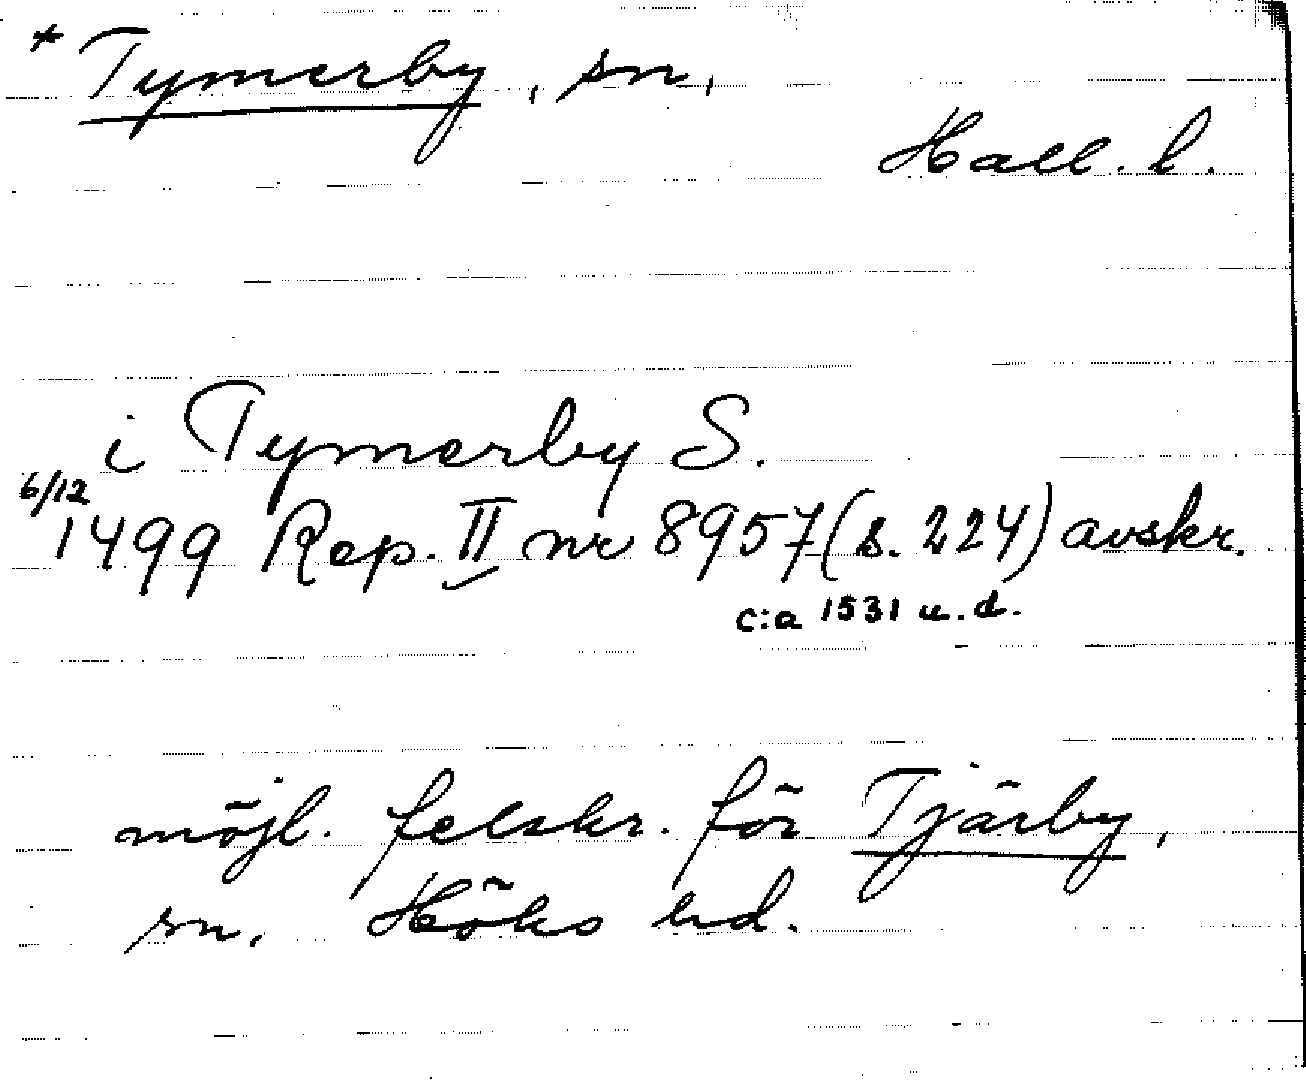 * Tymerby, sn,
Hall. l.
i Tymerby S.
6/12
1499 Rep. II nr 8957 (s. 224) avskr.
c:a 1531 u.d.
möjl. felskr. för Tjärby,
sn, Höks hd.